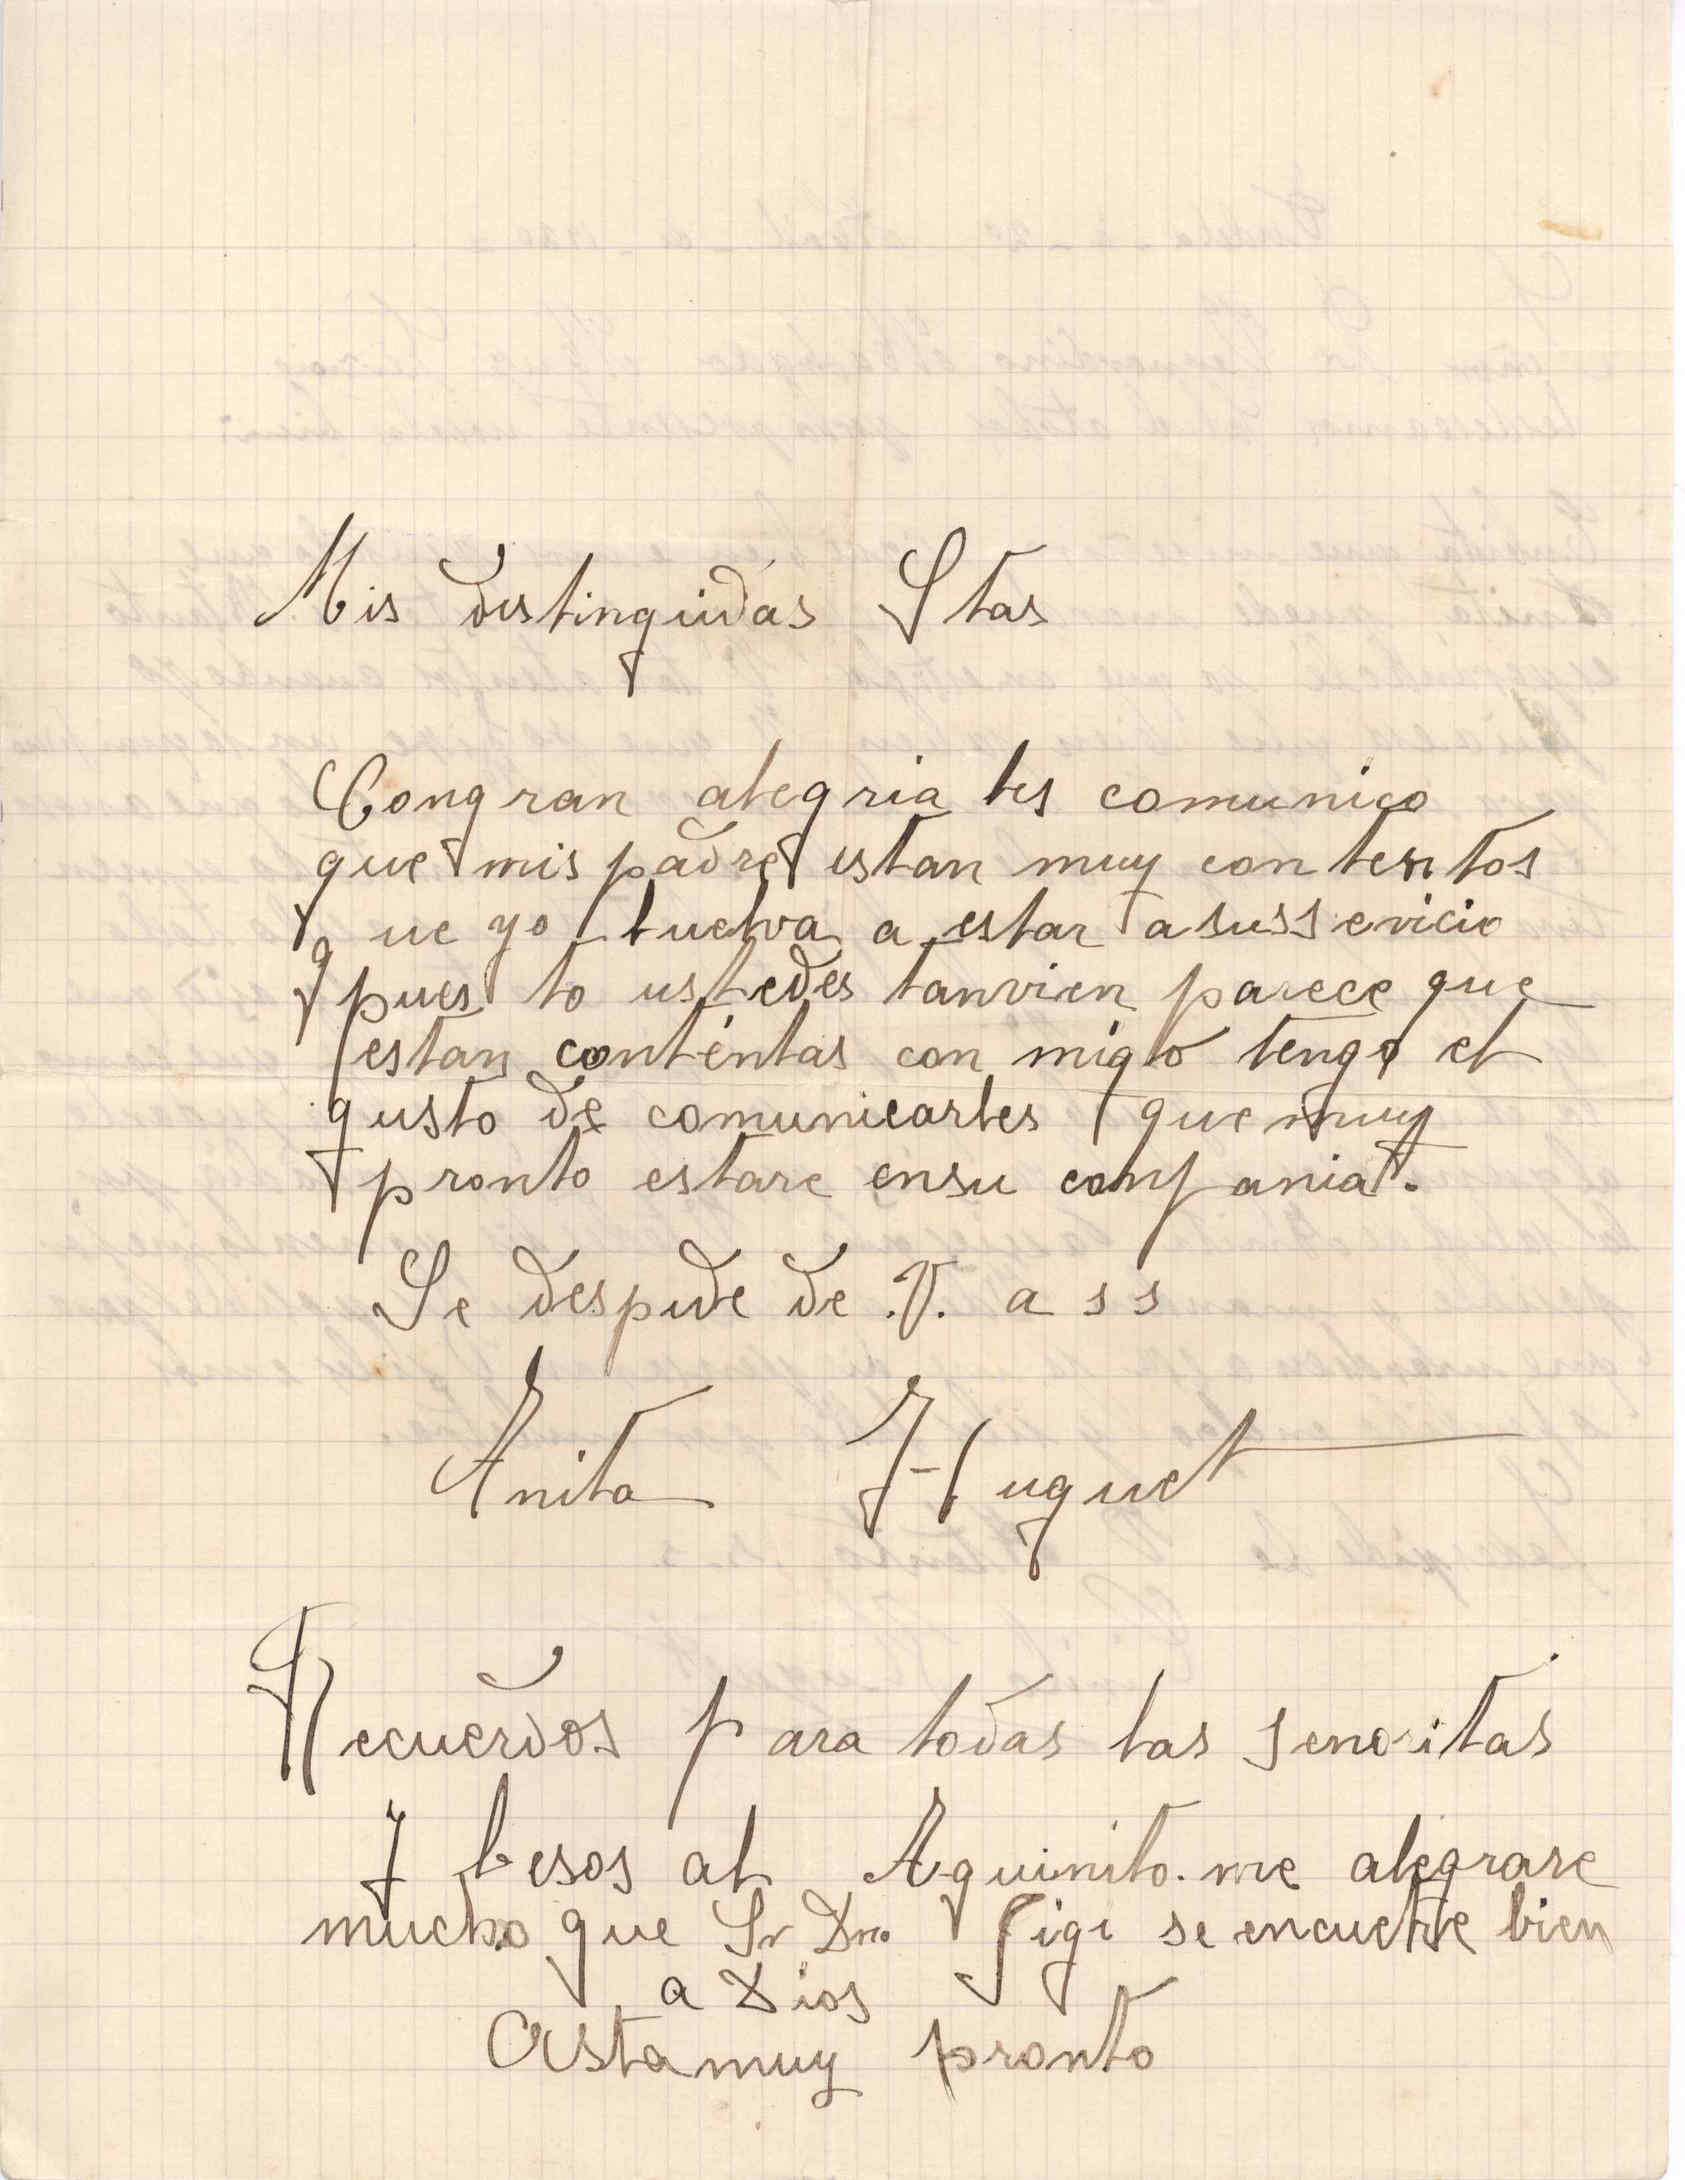 Mis distinguidas Stas
Con gran alegria les comunico
que mis padres estan muy contentos
que yo buelva a estar a sus sevicio
pues to ustedes tanvien parece que
estan contentas con migo tengo el
gusto de comunicarles que muy
pronto estare en su conpania.
Se despide de .V. a s s
Anita Huguet
Recuerdos para todas las senoritas
y besos al Aguinito. me alegrare
mucho que Sr Dn. Gigi se encuetre bien
a Dios
Asta muy pronto